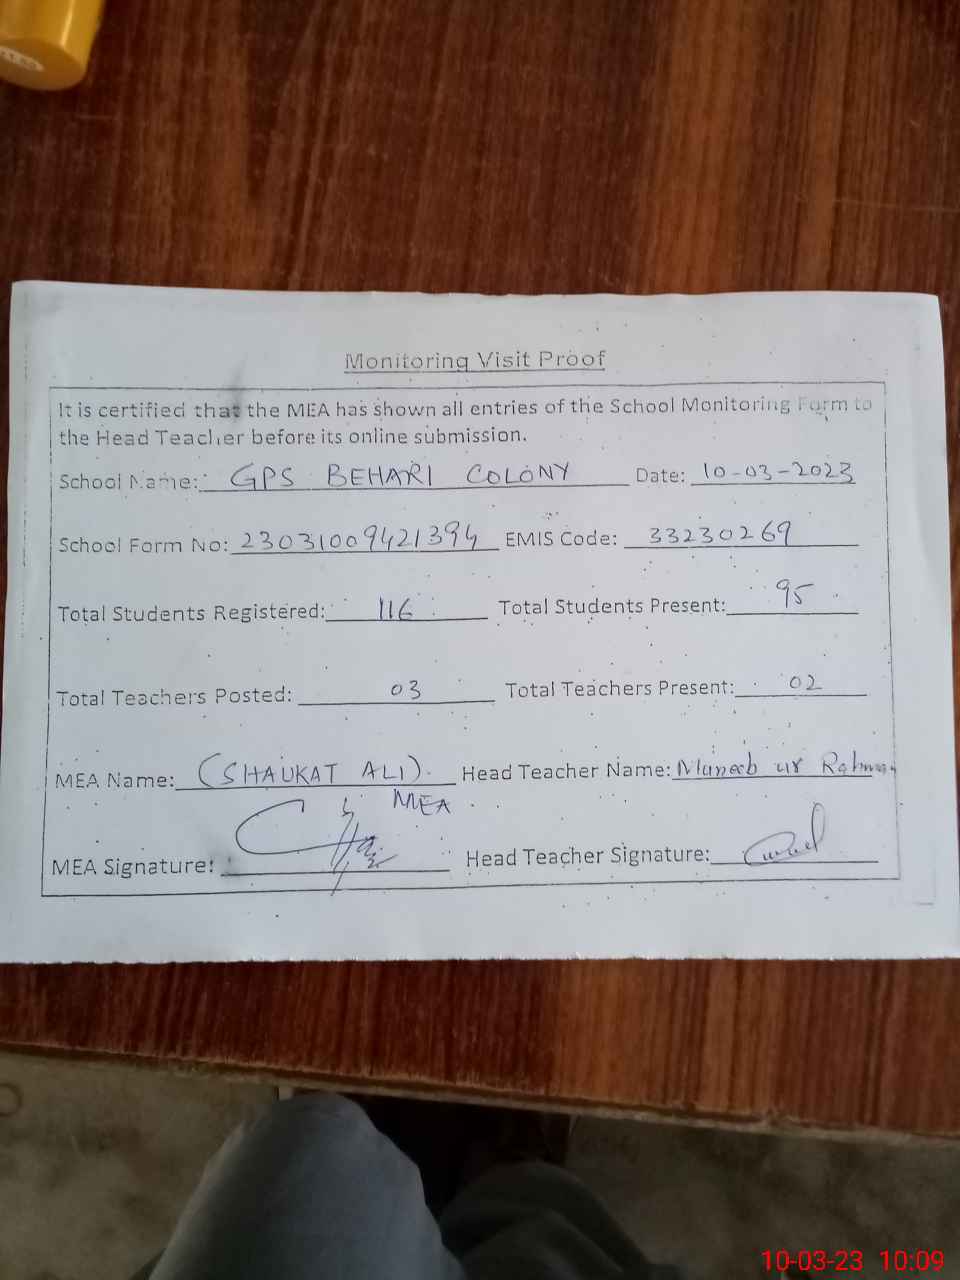 Monitoring Visit Proof
It is certified that the MEA has shown all entries of the School Monitoring Form to
the Head Teacher before its online submission.
School Name: GPS BEHARI COLONY Date: 10-03-2023
School Form No: 23031009421394 EMIS Code: 33230269
Total Students Registered: 116 Total Students Present: 95
Total Teachers Posted: 03 Total Teachers Present: 02
MEA Name: (SHAUKAT ALI). Head Teacher Name: Muneeb ur Rahman
MEA
MEA Signature: Head Teacher Signature:
10-03-23 10:09